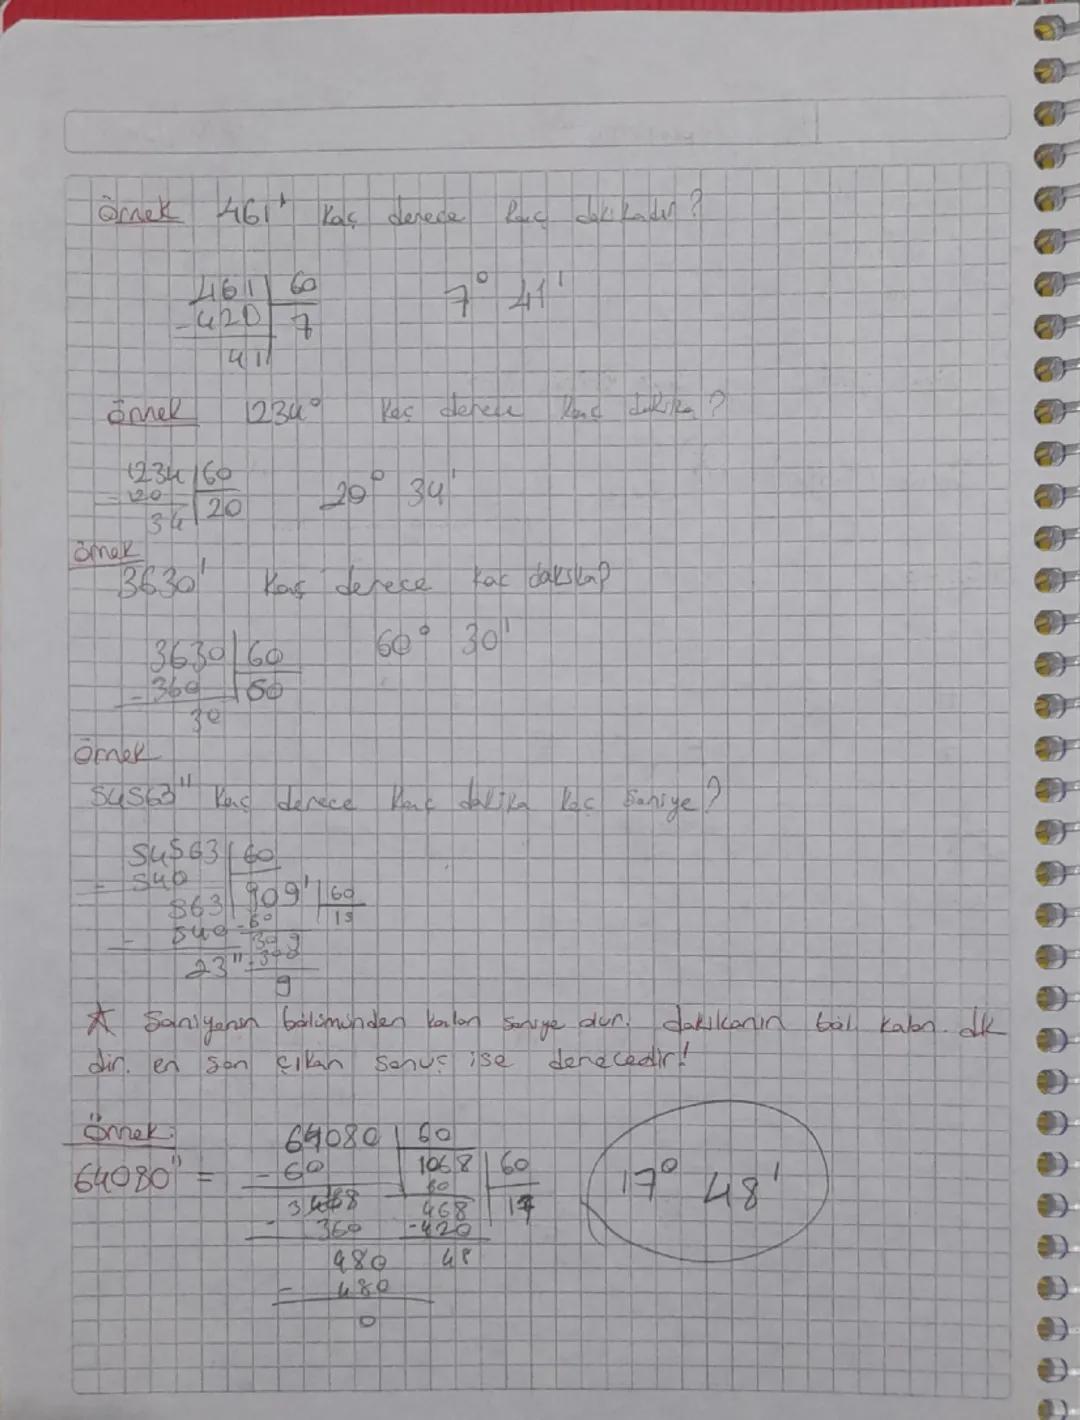 Örnek 461' kaç derece kaç dakikadır?
461 | 60 7° 41'
-420 | 7
41
Örnek 1234° kaç derece kaç dakika?
1234 | 60
- 120 | 20 20° 34'
34
Örnek
3630' kaç derece kaç dakika?
3630 | 60 60° 30'
- 360 | 60
30
Örnek
54563" kaç derece kaç dakika kaç saniye?
54563 | 60
- 540 | 909' | 60
563 | 15
- 540 -60
309
23" -300
9
☆ Saniyenin bölümünden kalan saniye dır. dakikanın böl kalan. dk
dir. en son çıkan sonuç ise derecedir!
Örnek:
64080" =
64080 | 60
- 60 1068 | 60 17° 48'
60 17
468
- 360 -420
480 48
- 480
0